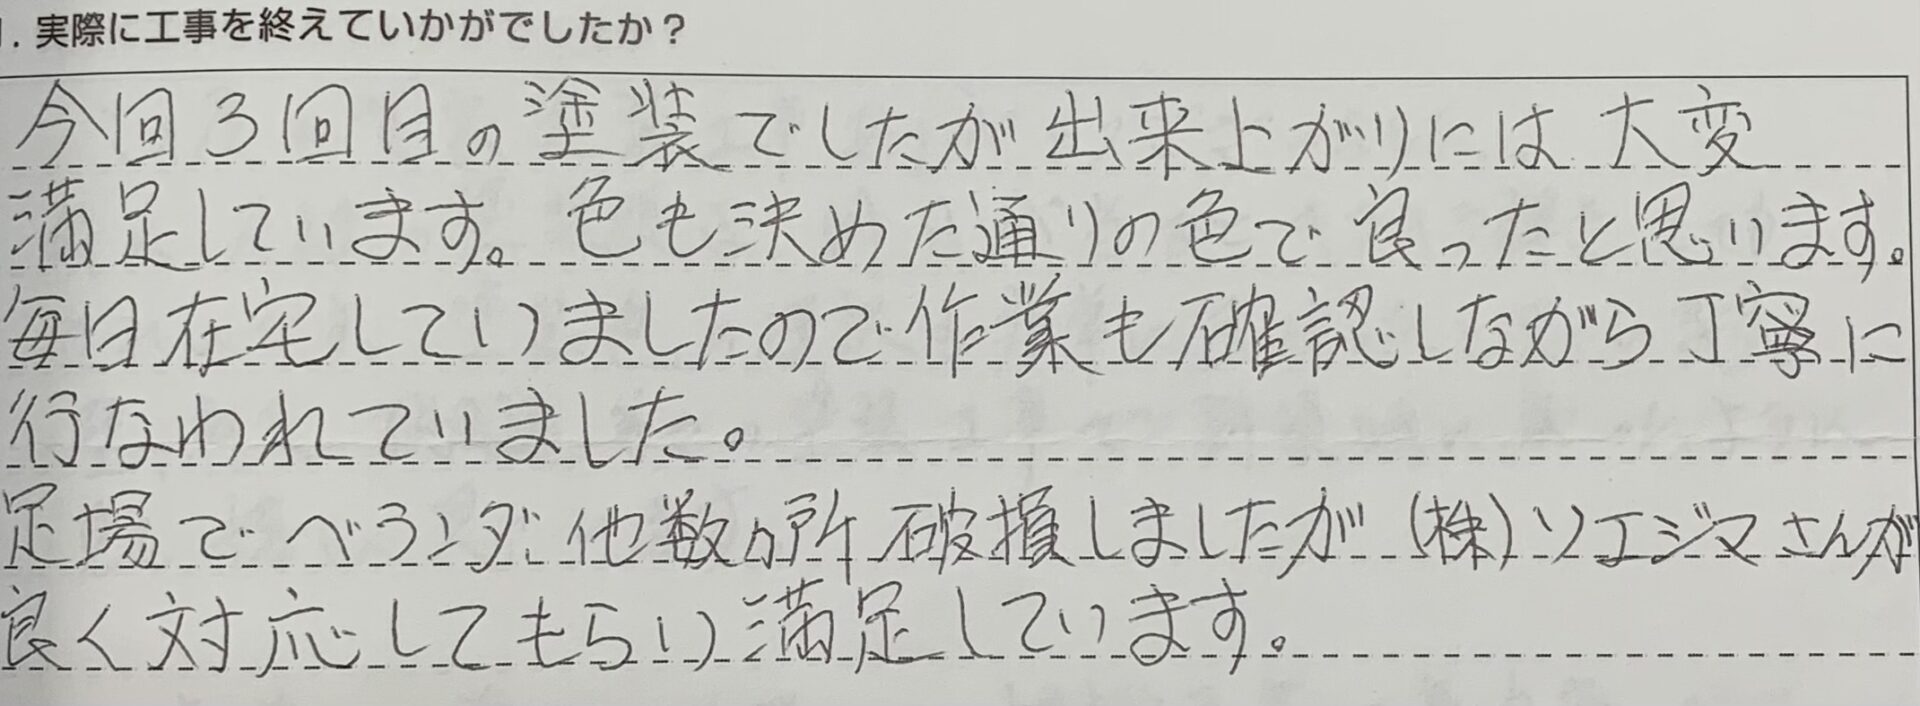 . 実際に工事を終えていかがでしたか？
今回3回目の塗装でしたが出来上がりには大変
満足しています。色も決めた通りの色で良ったと思います。
毎日在宅していましたので作業も確認しながら丁寧に
行なわれていました。
足場でベランダ他数か所破損しましたが(株)ソエジマさんが
良く対応してもらい満足しています。